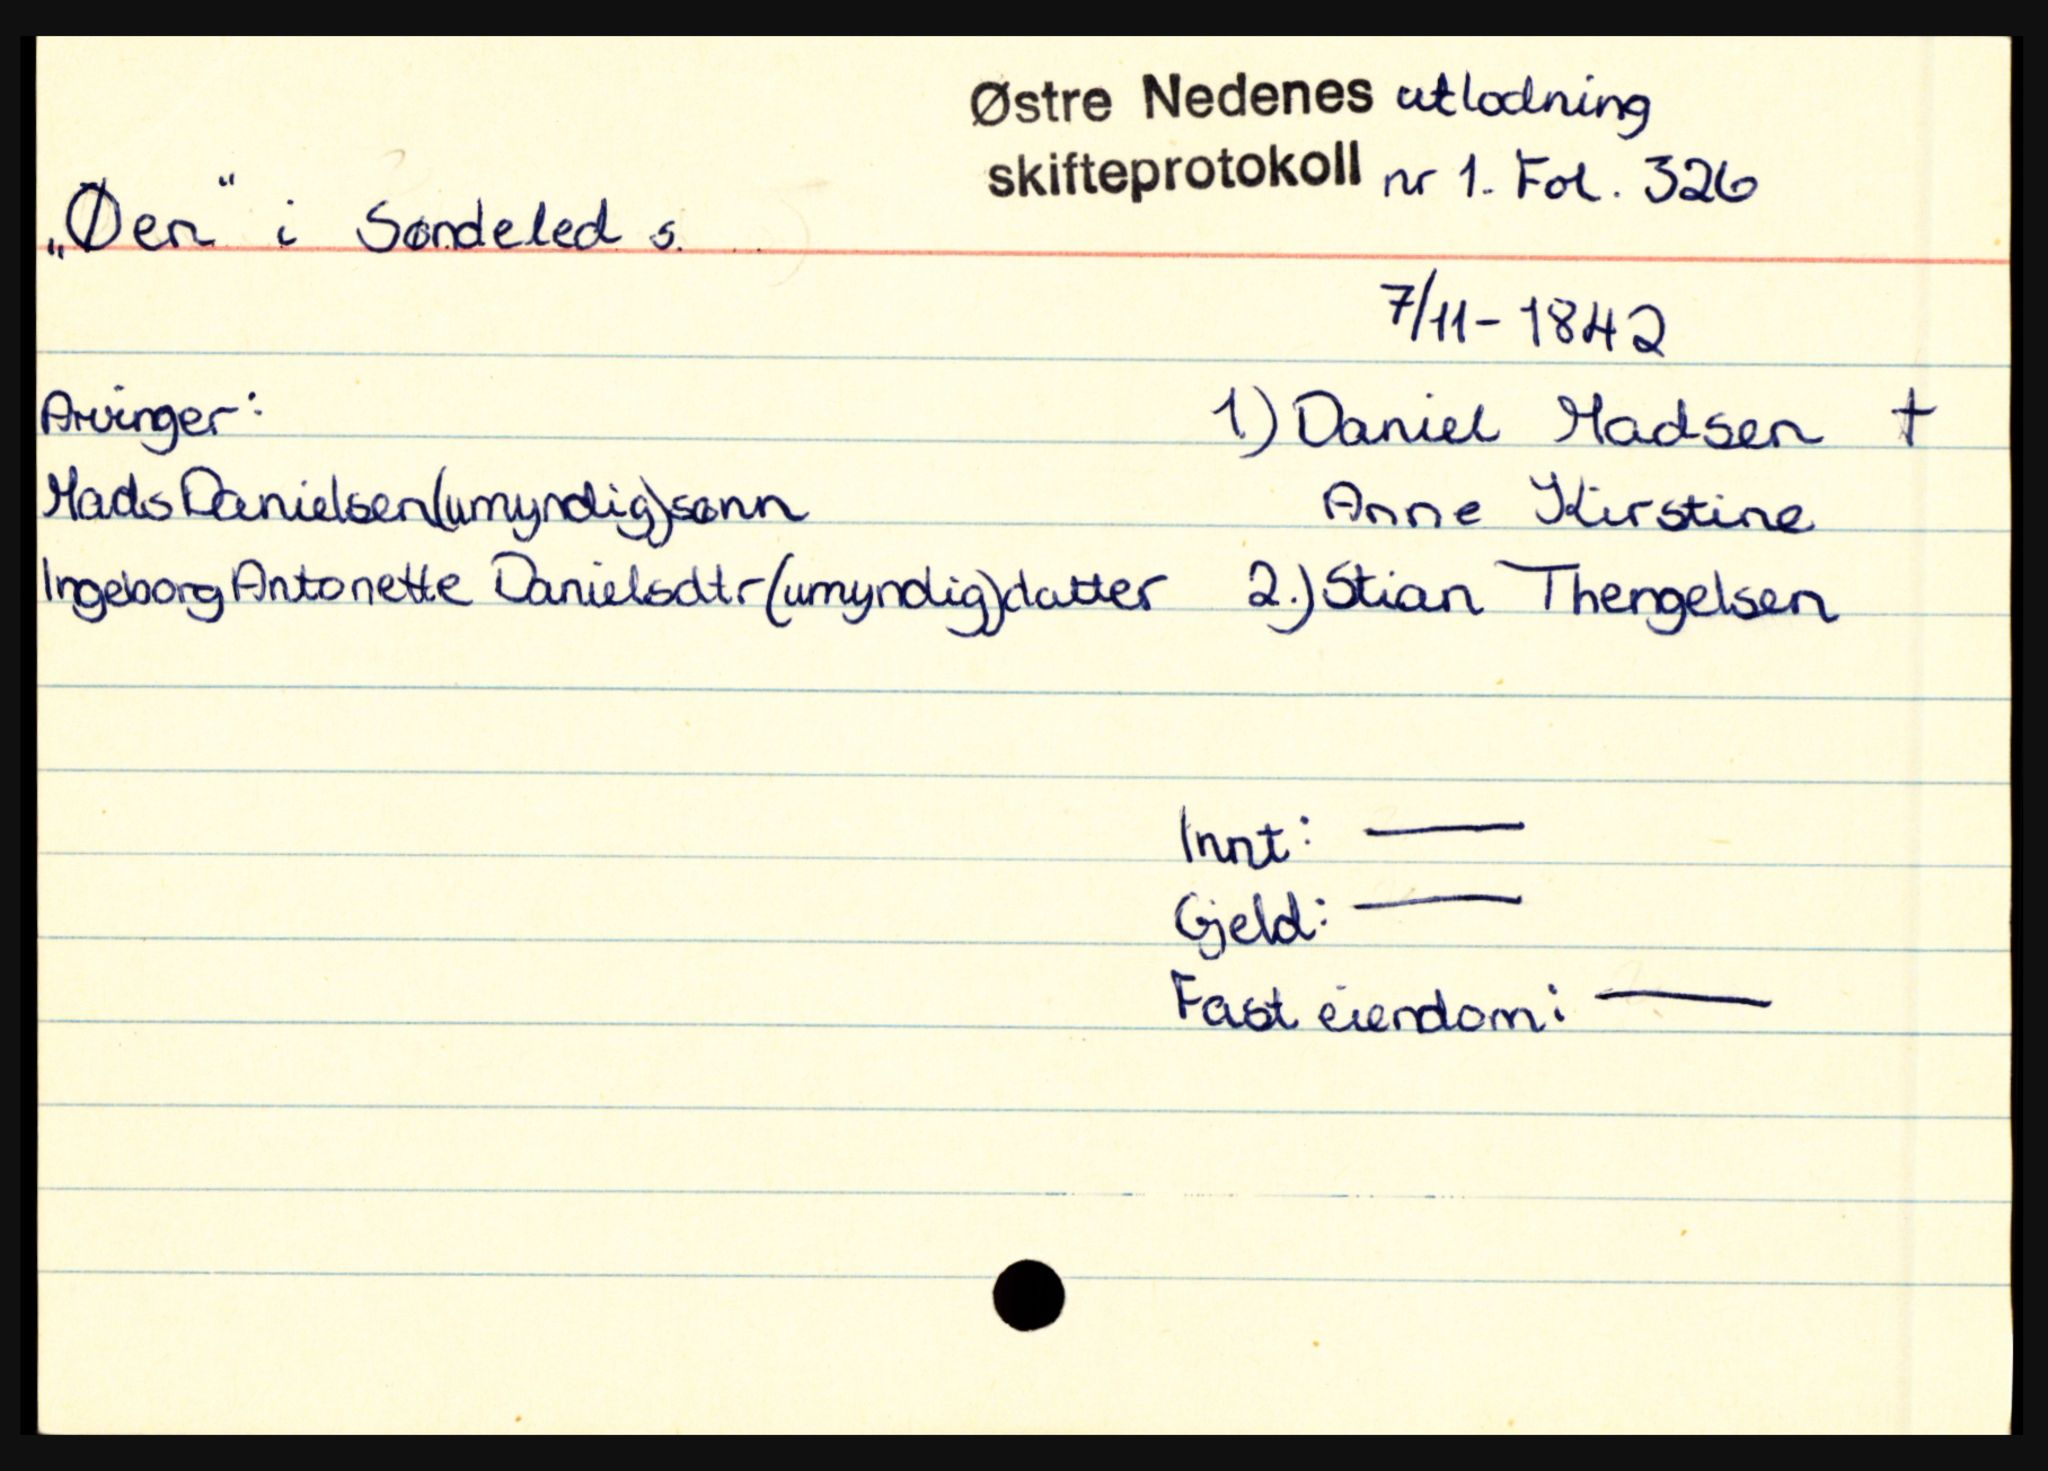 Østre Nedenes utlodning
skifteprotokoll nr 1. Fol. 326
„Øen“ i Søndeled s.
7/11-1842
Arvinger: 1) Daniel Madsen †
Mads Danielsen (umyndig) sønn Anne Kirstine
Ingeborg Antonette Danielsdtr (umyndig) datter 2.) Stian Thengelsen
Innt: —
Gjeld: —
Fast eiendom: —